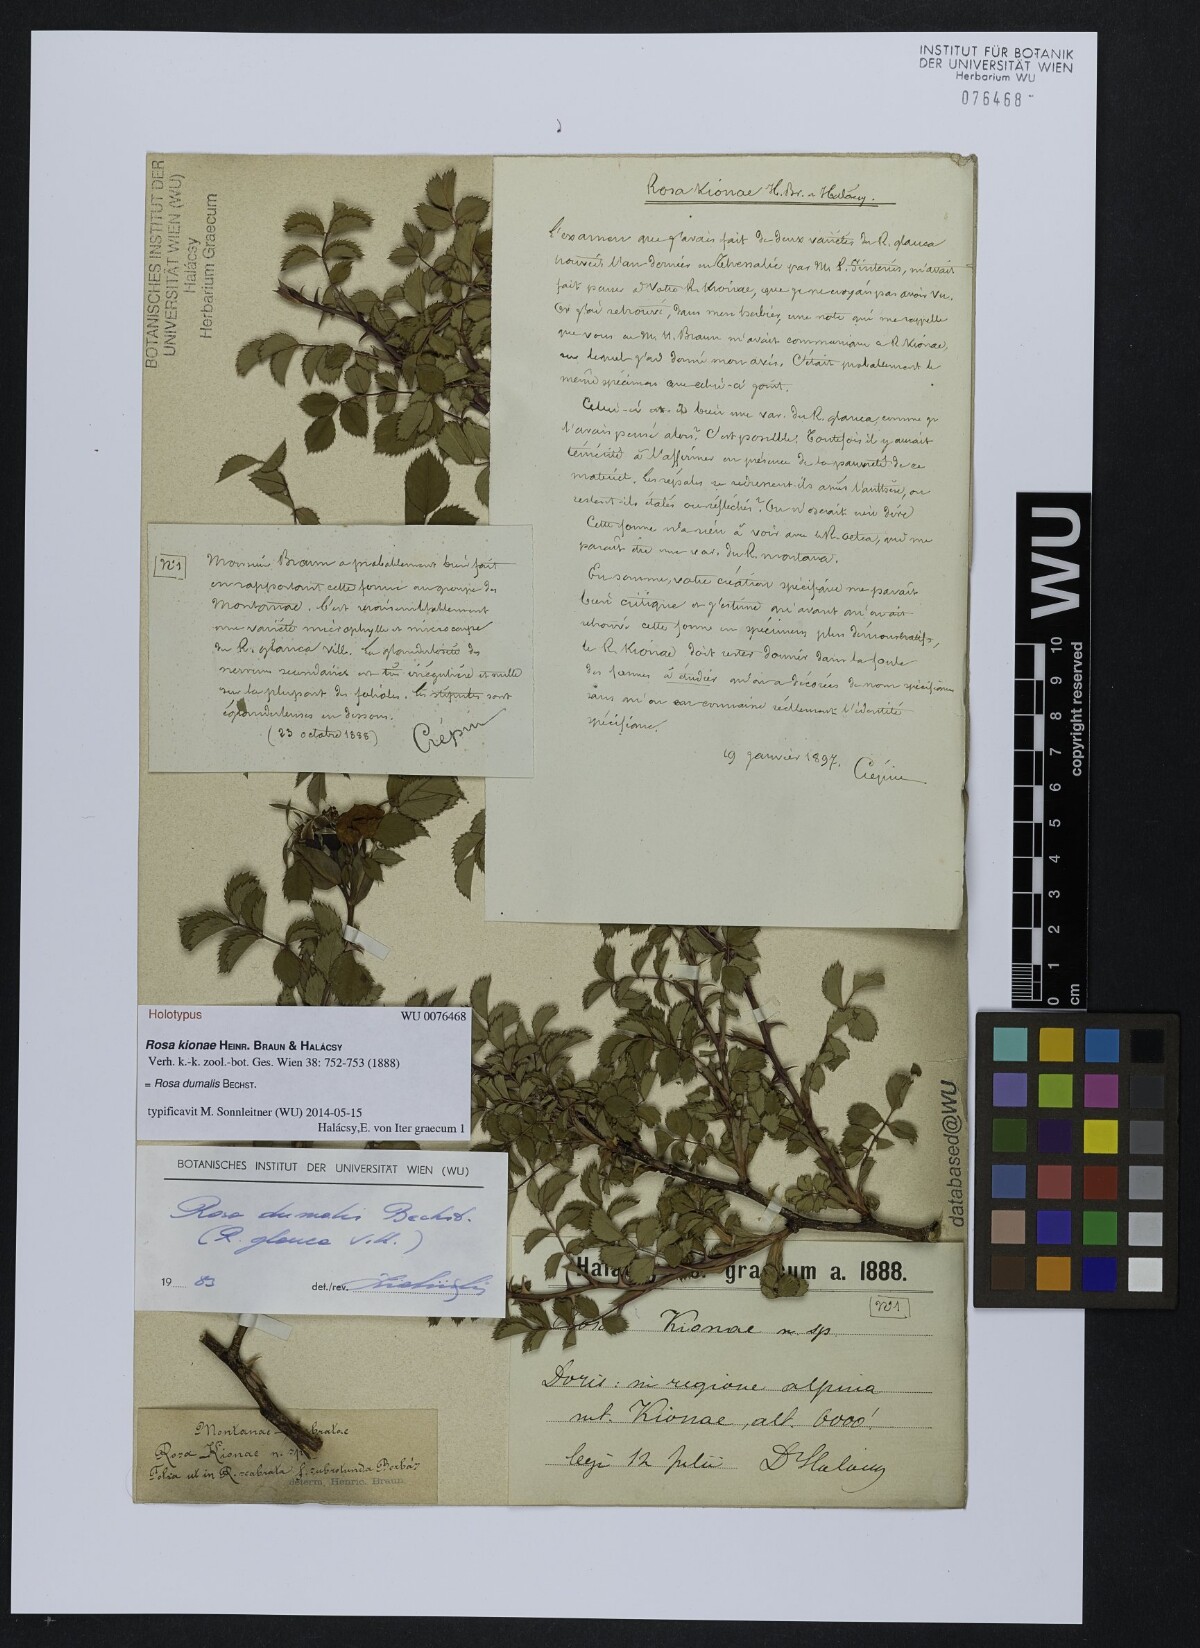 INSTITUT FÜR BOTANIK
DER UNIVERSITÄT WIEN
Herbarium WU
076468
BOTANISCHES INSTITUT DER
UNIVERSITÄT WIEN (WU)
Halácsy
Herbarium Graecum
Rosa Kionae H. Br. & Halácsy.
L'examen que j'avais fait de deux variétés du R. glauca
trouvées l'an dernier en Thessalie par M. P. Sintenis, m'avait
fait penser à votre R. Kionae, que je ne croyais pas avoir vu.
Or j'ai retrouvé, dans mon herbier, une note qui me rappelle
que vous ou M. H. Braun m'avait communiqué ce R. Kionae,
sur lequel j'ai donné mon avis. C'était probablement le
même spécimen que celui-ci joint.
Celui-ci est-il bien une var. du R. glauca, comme je
l'avais pensé alors? C'est possible! Toutefois il y aurait
témérité à l'affirmer en présence de la pauvreté de ce
matériel. Les sépales se redressent-ils après l'anthèse, ou
restent-ils étalés ou réfléchis? On n'oserait rien dire
Cette forme n'a rien à voir avec le R. oetea, qui me
paraît être une var. du R. montana.
En somme, votre création spécifique me paraît
bien critique et j'estime qu'avant qu'on ait
retrouvé cette forme en spécimens plus démonstratifs,
le R. Kionae doit rester dans la foule
des formes à étudier qu'on a décorées de noms spécifiques
sans qu'on en connaisse réellement l'identité
spécifique.
19 janvier 1897. Crépin
No 1
Monsieur Braun a probablement bien fait
en rapportant cette forme au groupe des
Montanae. C'est vraisemblablement
une variété microphylle et microcarpe
du R. glauca Vill. La glandulosité des
nervures secondaires est très irrégulière et nulle
sur la plupart des folioles. Les stipules sont
églanduleuses en dessous.
(23 octobre 1888) Crépin
Holotypus WU 0076468
Rosa kionae HEINR. BRAUN & HALÁCSY
Verh. k.-k. zool.-bot. Ges. Wien 38: 752-753 (1888)
= Rosa dumalis BECHST.
typificavit M. Sonnleitner (WU) 2014-05-15
Halácsy,E. von Iter graecum 1
BOTANISCHES INSTITUT DER UNIVERSITÄT WIEN (WU)
Rosa dumalis Bechst.
(R. glauca Vill.)
19 83 det./rev.
graecum a. 1888.
No 1
Kionae n. sp.
Doris: in regione alpina
mt. Kionae, alt. 6000'.
legi 12 Julii Dr Halácsy
Montanae
Rosa Kionae n. sp.
Folia ut in R. scabrata f. subrotunda Borbás
determ. Henric. Braun
databased@WU
WU
0 1 2 3 4 5 6 7 8 9 10
cm
copyright reserved